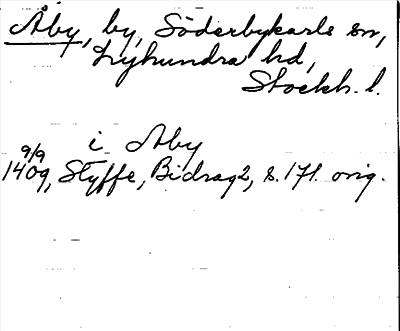 Åby, by, Söderbykarls sn,
Lyhundra hd,
Stockh. l.
i Aby
9/9
1409, Styffe, Bidrag 2, s. 171. orig.